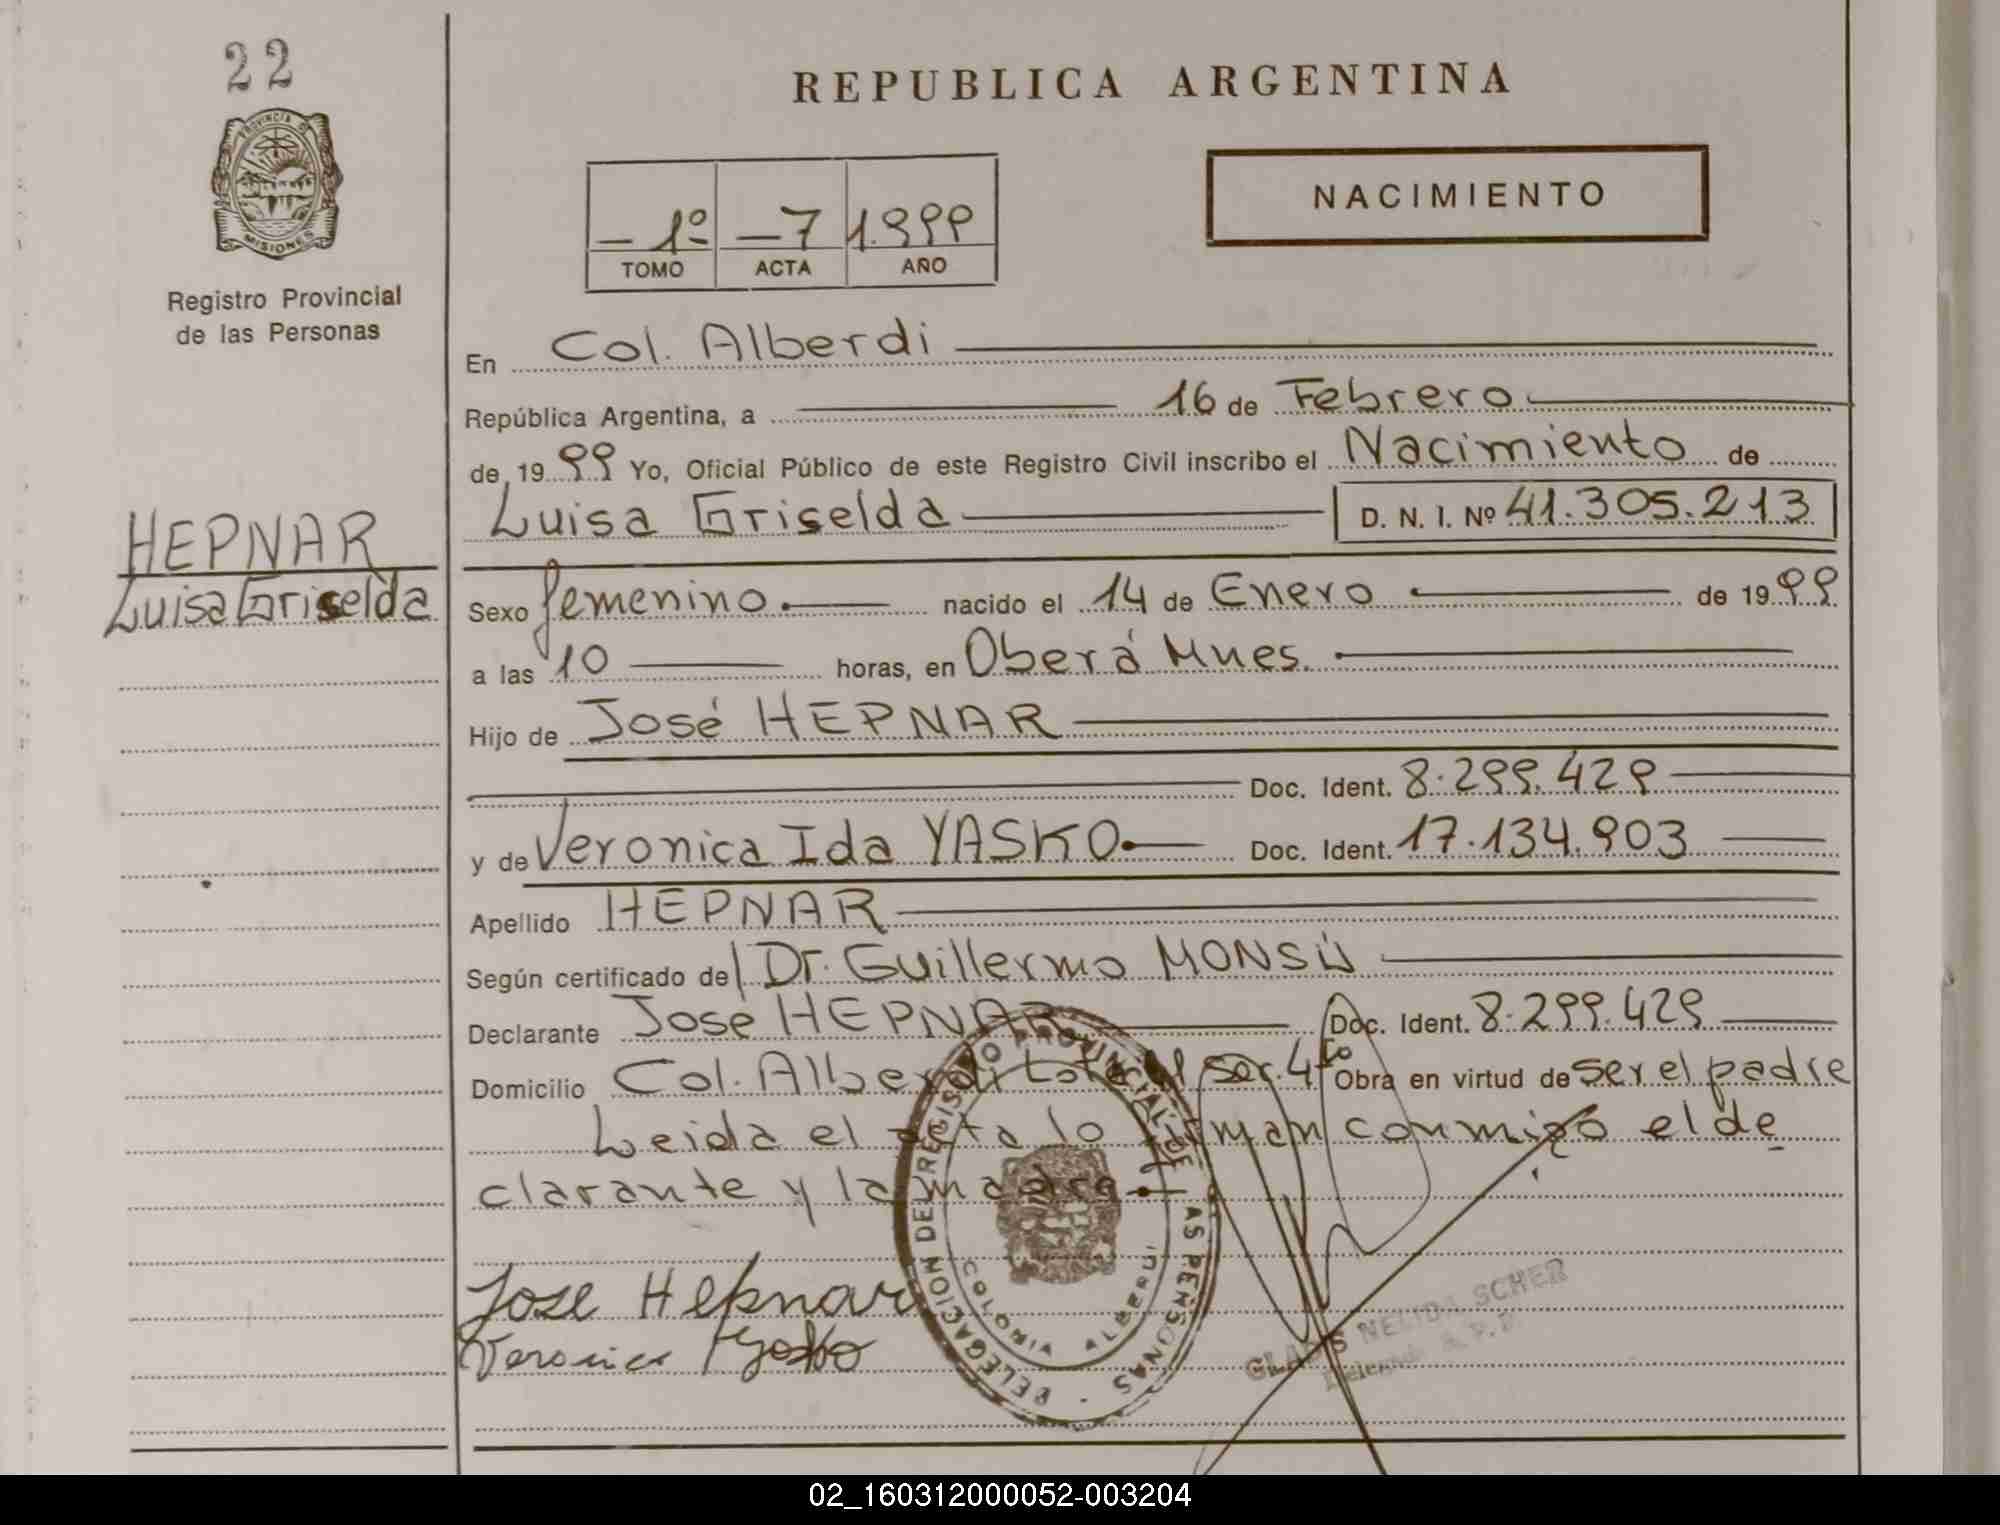 22
PROVINCIA DE
MISIONES
Registro Provincial
de las Personas
REPUBLICA ARGENTINA
NACIMIENTO
- 1º - 7 1.999
TOMO ACTA AÑO
HEPNAR
Luisa Griselda
En Col. Alberdi
República Argentina, a 16 de Febrero
de 1999 Yo, Oficial Público de este Registro Civil inscribo el Nacimiento de
Luisa Griselda D. N. I. Nº 41.305.213
Sexo femenino. nacido el 14 de Enero de 1999
a las 10 horas, en Oberá Mnes.
Hijo de José HEPNAR
Doc. Ident. 8.299.429
y de Veronica Ida YASKO. Doc. Ident. 17.134.903
Apellido HEPNAR
Según certificado del Dr. Guillermo MONSÚ
Declarante Jose HEPNAR Doc. Ident. 8.299.429
Domicilio Col. Alberdi Lote Sec. 4to Obra en virtud de ser el padre
Leida el acta lo firman conmigo el de
clarante y la madre.
Jose Hepnar
Veronica Yasko
DELEGACION DEL REGISTRO PROVINCIAL DE LAS PERSONAS
COLONIA ALBERDI
GLADYS NELIDA SCHER
Delegada R. P. P.
02_160312000052-003204